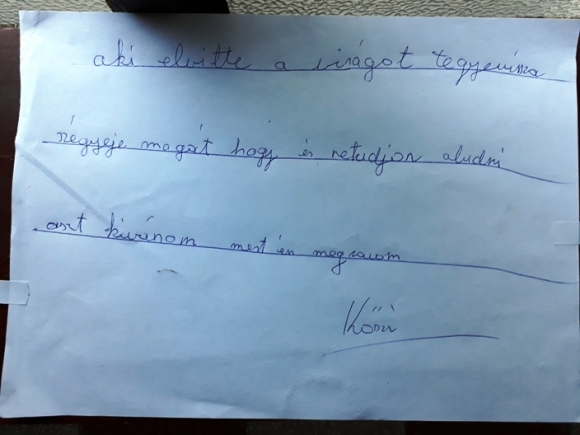 aki elvitte a virágot tegyevissa
régyeje magát hogy én netudjon aludni
aszt kívánom mert én
Köszi